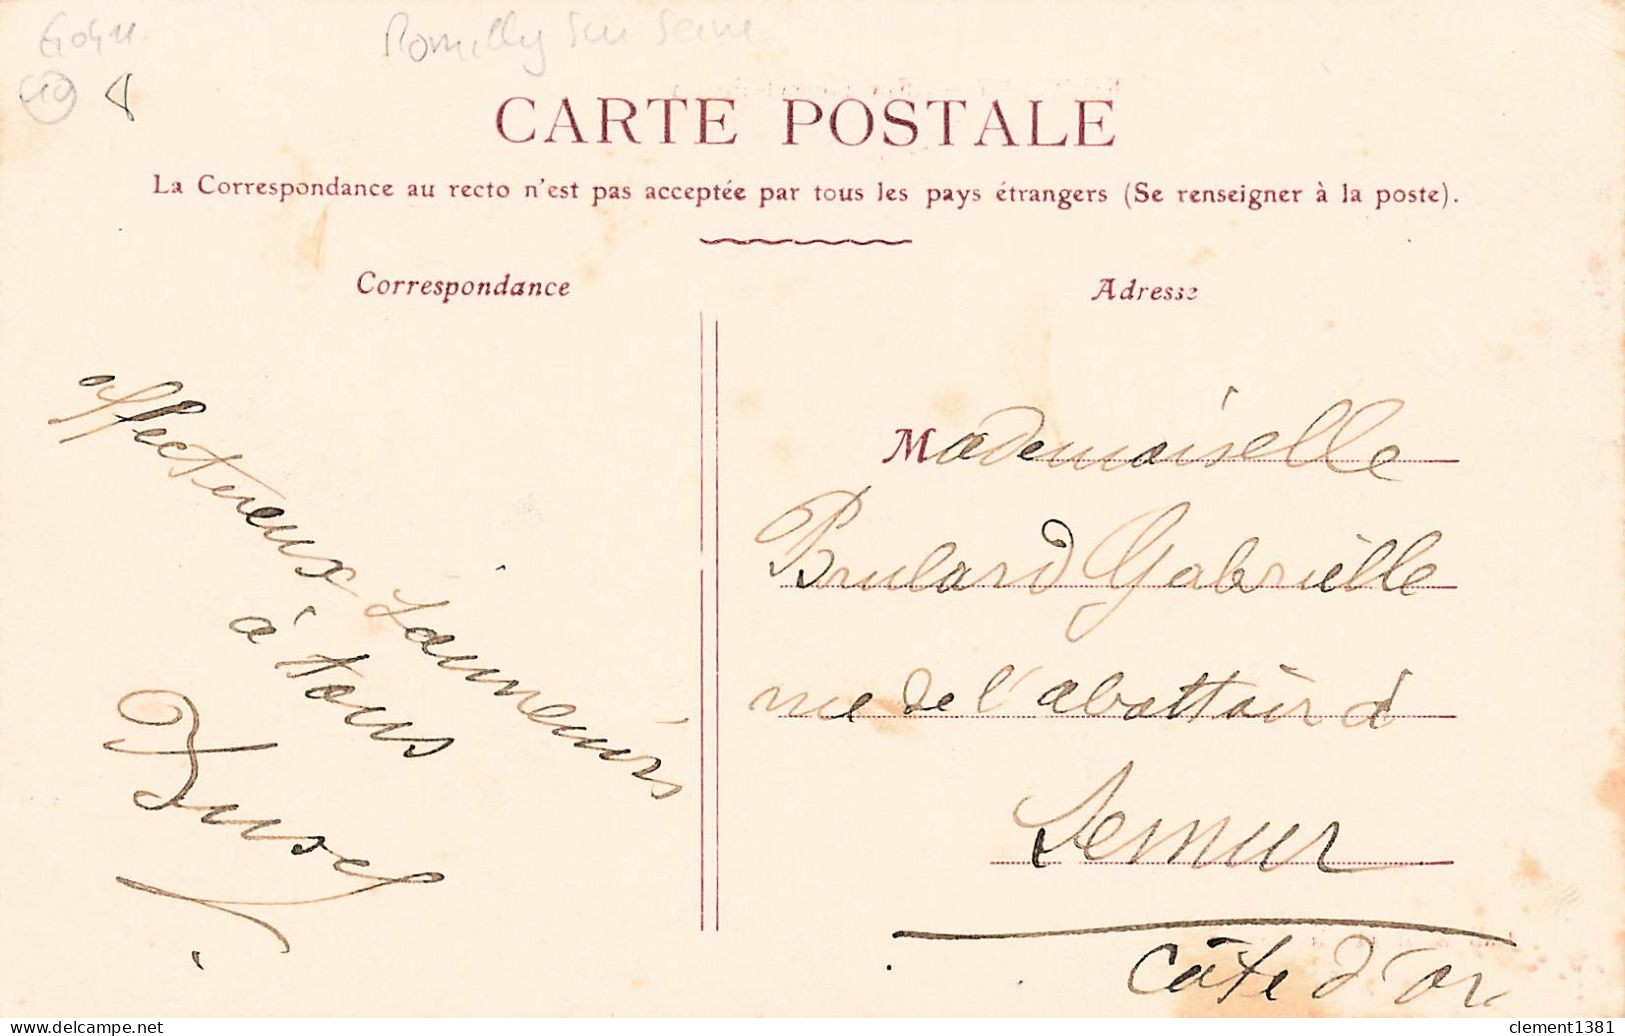 Romilly sur Seine
CARTE POSTALE
La Correspondance au recto n'est pas acceptée par tous les pays étrangers (Se renseigner à la poste).
Correspondance
affectueux
à tous
Adresse
Mademoiselle
Brulard Gabrielle
rue de l'abattoir à
Semur
Côte d'Or
clement1381